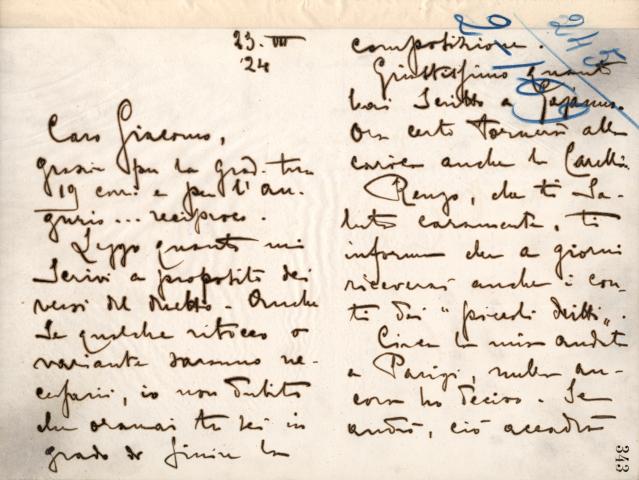 23. VII
'24
Caro Giacomo,
grazie per la grad. tua
19 corr. e per l'au-
gurio... reciproco.
Leggo quanto mi
scrivi a proposito dei
versi del duetto. Anche
se qualche ritocco o
variante saranno ne-
cessarii, io non dubito
che oramai tu sei in
grado di finire la
composizione.
Giustissimo quanto
hai scritto a
Ora certo tornerà alla
carica anche la
Renzo, che ti sa-
luta caramente, ti
informa che a giorni
riceverai anche i con-
ti dei "piccoli diritti".
Circa la mia andata
a Parigi, nulla an-
cora ho deciso. Se
andrò, ciò accadrà
343